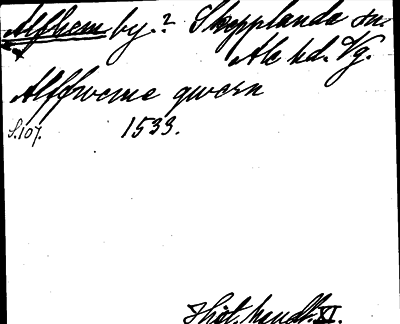 Alfhem by.? Skepplanda sn.
Ale hd. Vg.
Alffweme qwern
S.107. 1533.
Hist. handl. XI.